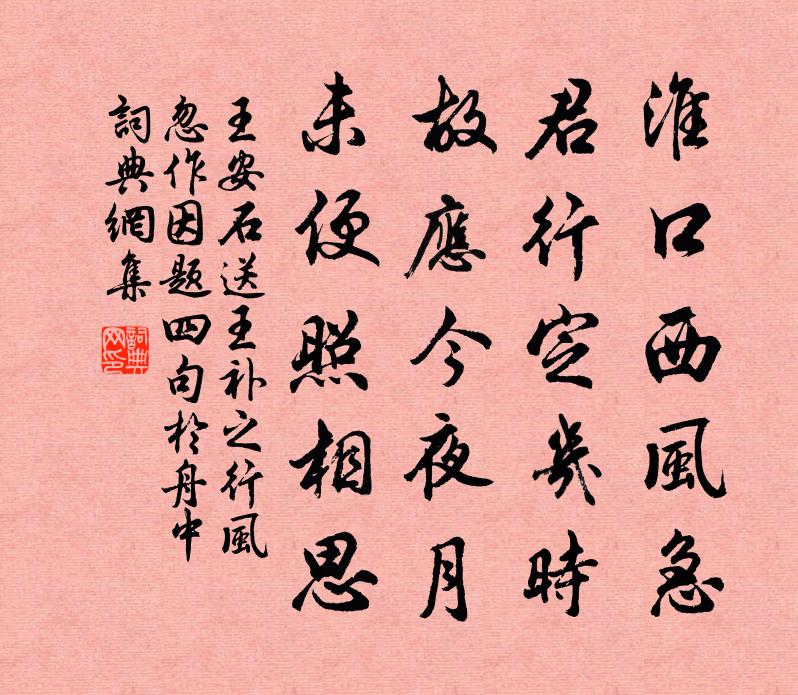 淮口西風急
君行定幾時
故應今夜月
未便照相思
王安石送王补之行風
忽作因題四句於舟中
詞典網集
詞典网印